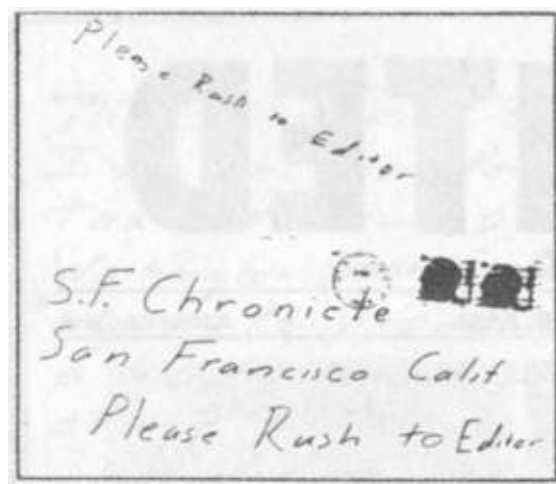 Please Rush to Editor
TED
S.F. Chronicle
San Francisco Calif
Please Rush to Editor